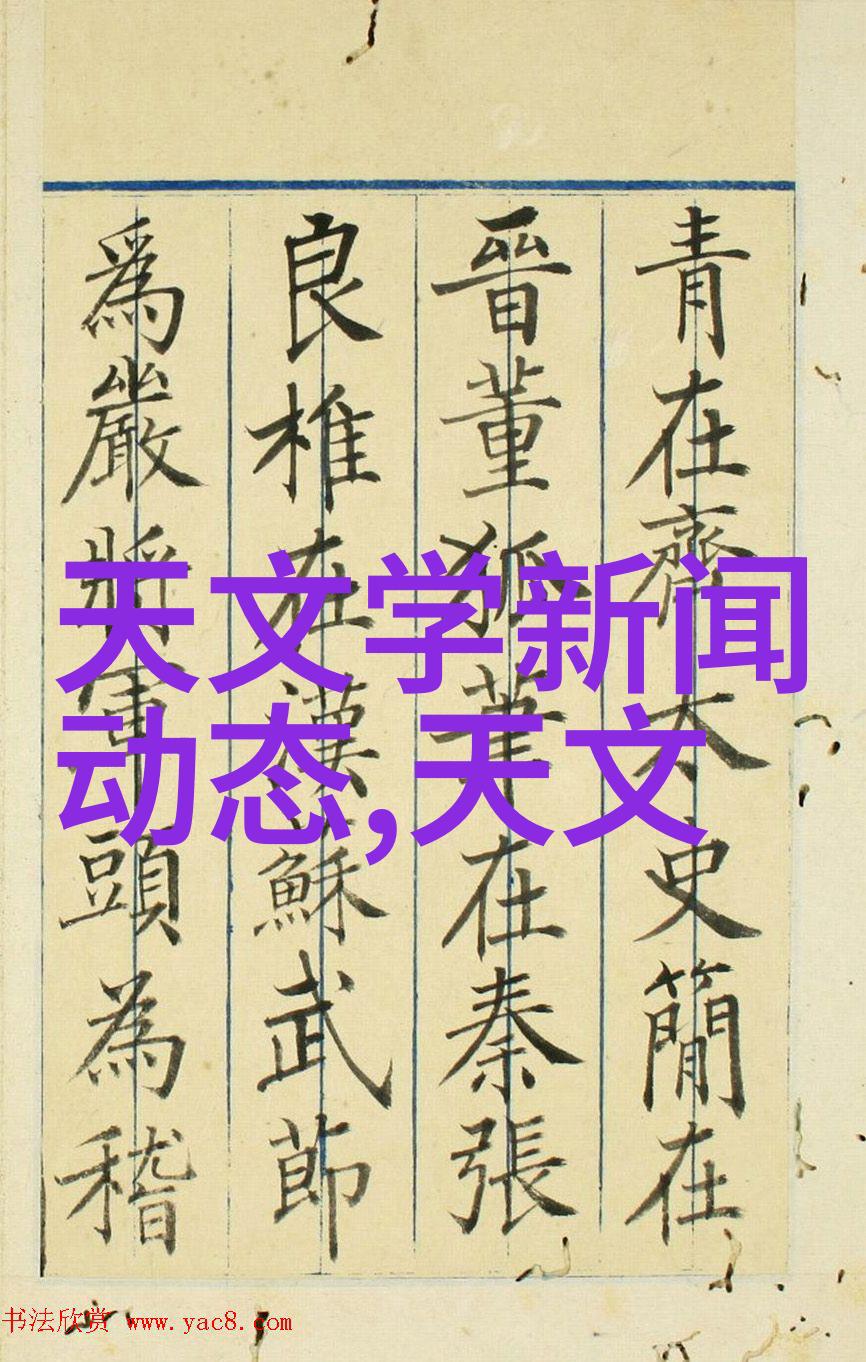 青在齊太史簡在
晉董狐筆在秦張
良椎在漢蘇武節
爲嚴將軍頭為嵇
天文学新闻
动态,天文
书法欣赏 www.yac8.com